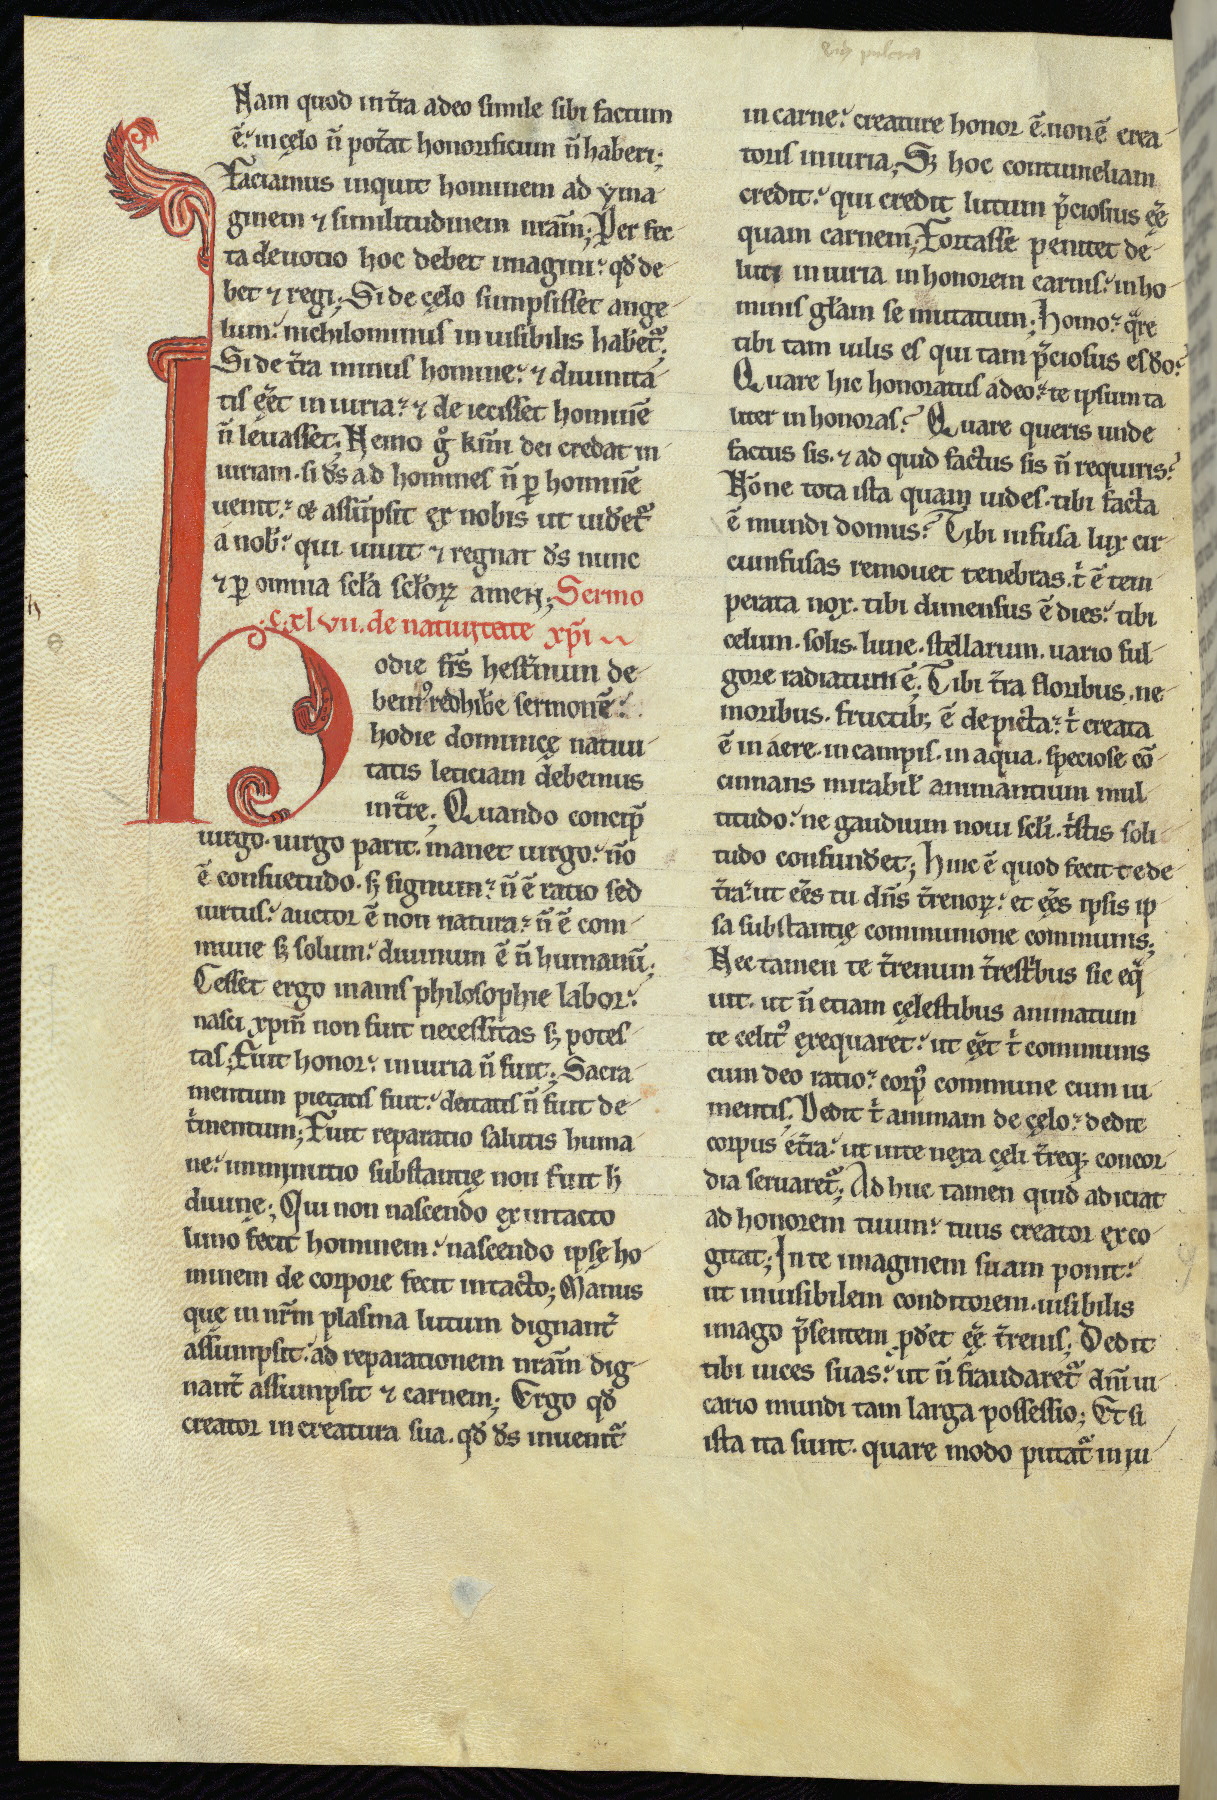 Nam quod in t̄ra adeo simile sibi factum
ē: in cęlo n̄ pot̄at honorificum n̄ haberi;
Faciamus inquit hominem ad yma
ginem ⁊ similitudinem nrām; Per fec
ta deuotio hoc debet imagini: qđ de
bet ⁊ regi; Si de cęlo sumpsisset ange
lum: nichilominus inuisibilis habet᷑;
Si de t̄ra minus homine: ⁊ diuinita
tis ęēt iniuria: ⁊ de iecisset hominē
n̄ leuasset; Nemo g̊ km̄i dei credat in
iuriam. si ds̄ ad homines n̄ ꝑ hominē
uenit: & assūpsit ex nobis ut uidet᷑
a nob̄: qui uiuit ⁊ regnat ds̄ nunc
⁊ ꝑ omnia scła scłoꝝ amen; Sermo
.c.xl vii. de natiuitate xp̄i
Hodie frs̄ hest̄num de
bem᷒ redhibe sermonē:
hodie dominicę natiui
tatis leticiam debemus
int̄re; Quando concip̄
uirgo. uirgo parit. manet uirgo: n̄o
ē consuetudo. sꝫ signum: n̄ ē ratio sed
uirtus: auctor ē non natura: n̄ ē com
mune sꝫ solum: diuinum ē n̄ humanū;
Cesset ergo inanis philosophie labor:
nasci xp̄m non fuit necessitas sꝫ potes
tas; Fuit honor: iniuria n̄ fuit; Sacra
mentum pietatis fuit: deitatis n̄ fuit de
t̄mentum; Fuit reparatio salutis huma
ne: inminutio substantię non fuit h̄
diuine; Qui non nascendo ex intacto
limo fecit hominem: nascendo ipsę ho
minem de corpore fecit intacto; Manus
que in nrm̄ plasma lutum dignant᷑
assumpsit: ad reparationem nrām dig
nant᷑ assumpsit ⁊ carnem; Ergo qđ
creator in creatura sua. qđ ds̄ inuenit᷑
in carne: creature honor ē. non ē crea
toris iniuria; Sꝫ hoc contumeliam
credit: qui credit lutum p̄ciosius ęē
quam carnem; Fortasse penitet de
luti iniuria in honorem carnis: in ho
minis głam se mutatum; Homo: q̄re
tibi tam uilis es qui tam p̄ciosus es do:
Quare hic honoratus adeo: te ipsum ta
liter in honoras? Quare queris unde
factus sis. ⁊ ad quid factus sis n̄ requiris?
Nōne tota ista quam uides. tibi facta
ē mundi domus? Tibi infusa lux cir
cumfusas remouet tenebras. t̄ ē tem
perata nox. tibi dimensus ē dies: tibi
celum. solis. lune. stellarum. uario ful
gore radiatum ē; Tibi t̄ra floribus. ne
moribus. fructibꝫ ē depicta: t̄ creata
ē in aere. in campis. in aqua. speciose cō
cinnans mirabił animantium mul
titudo: ne gaudium noui scłi. t̄stis soli
tudo confundet; Hinc ē quod fecit te de
t̄ra: ut ēes tu dn̄s t̄renoꝝ: et ęēs ipsis ip
sa substantię communione communis;
Nec tamen te t̄renum t̄rest̄bus sic eq̄
uit. ut n̄ etiam cęlestibus animatum
te celit᷒ exequaret: ut ęēt t̄ communis
cum deo ratio: corp᷒ commune cum iu
mentis; Dedit t̄ animam de cęlo: dedit
corpus et̄ra: ut in te nexa cęli t̄req; concor
dia seruaret᷑; Ad huc tamen quid adiciat
ad honorem tuum: tuus creator exco
gitat; In te imaginem suam ponit:
ut inuisibilem conditorem. uisibilis
imago p̄sentem. ꝓdet ęē t̄renis; Dedit
tibi uices suas: ut n̄ fraudaret᷑ dn̄i ui
cario mundi tam larga possessio; Et si
ista ita sunt. quare modo putat᷑ in iu